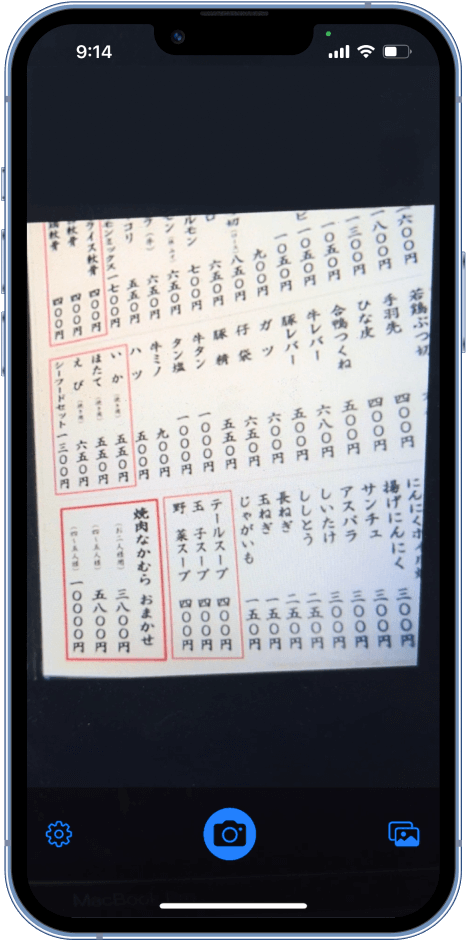 9:14
一六〇〇円
一八〇〇円
一三〇〇円
一〇五〇円
一〇五〇円
一〇五〇円
九〇〇円
八五〇円
六五〇円
七〇〇円
六五〇円
六五〇円
五五〇円
モンミックス 一七〇〇円
ライス軟骨 四〇〇円
軟骨 四〇〇円
軟骨 四〇〇円
若鶏ぶつ切
手羽先 四〇〇円
ひな皮 四〇〇円
合鴨つくね 五〇〇円
牛レバー 六八〇円
豚レバー 五〇〇円
ガツ 六〇〇円
仔袋 六五〇円
豚精 五五〇円
牛タン 一〇〇〇円
タン塩 一〇〇〇円
牛ミノ 九〇〇円
ハツ 五〇〇円
いか 五五〇円
ほたて 五五〇円
えび 六五〇円
シーフードセット 一三〇〇円
にんにくホイル 三〇〇円
揚げにんにく 三〇〇円
サンチュ 三〇〇円
アスパラ 三〇〇円
しいたけ 二五〇円
ししとう 二五〇円
長ねぎ 一五〇円
玉ねぎ 一五〇円
じゃがいも
テールスープ 四〇〇円
玉子スープ 四〇〇円
野菜スープ 四〇〇円
焼肉なかむら おまかせ
(お二人様用) 三八〇〇円
五八〇〇円
(四〜五人様) 一〇〇〇〇円
MacBook